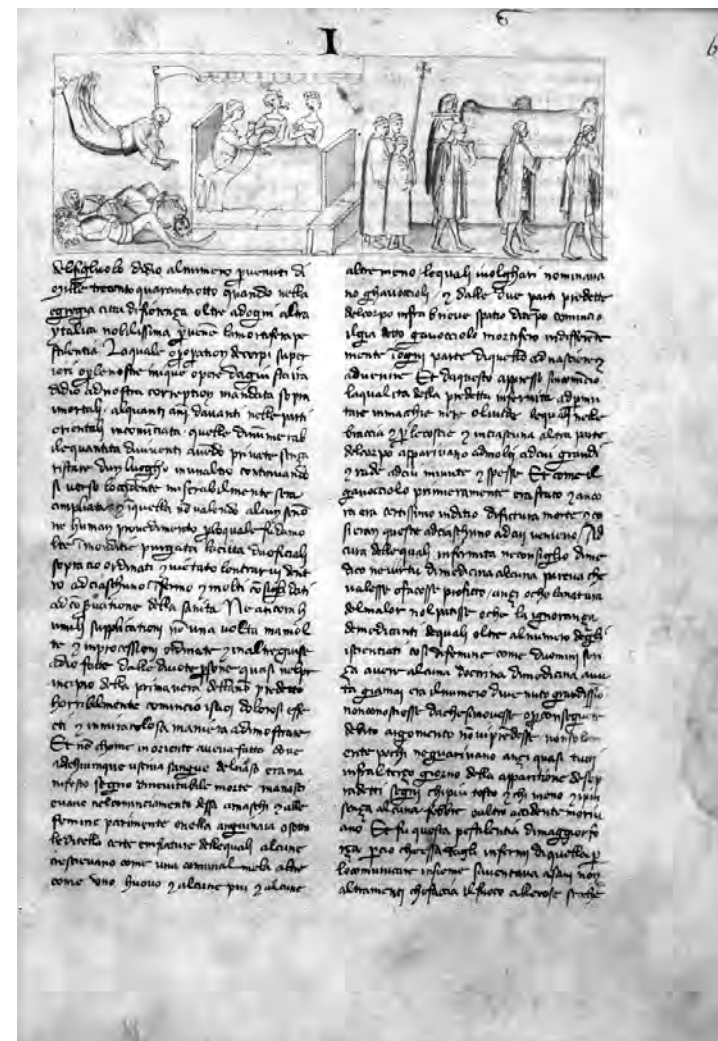 I
6
del figliuolo didio alnumero pervenuti di
Mille trecento quarantotto quando nella
egregia citta difiorenza oltre adogni altra
ytalica nobilissima pervene lamortifera pe
stilentia Laquale operation decorpi super
iori
didio ad nostra correption mandata sopra
imortali alquanti ani davanti nelle parti
orientali incominciata quelle dinumerabi
le quantita di viventi avendo private senza
ristare dun luogho inunaltro continuando
si verso loccidente miserabilmente sera
ampliata 7 inquella no valendo alcun seno
ne human provedimento
sopra cio ordinati 7 vietato lentrarvi dent
ro ad ciaschuno infermo 7 molti
della sanita Ne ancora h
umili supplicationi no una volta ma mol
te 7 inprocessioni ordinate
adio fatte dalle divote psone quasi nel pr
incipio della primavera dellano predetto
horribilmente comincio isuoi dolorosi effe
cti 7 inmiracolosa maniera adimostrare
Et no chome in oriente aveva fatto dove
ad chiunque usciva sangue del naso era ma
nifesto segno dinevitabile morte
nel cominciamento dessa amaschi 7 alle
femine parimente onella anguinaia o sotto
le ditella certe enfiature delle quali alcune
crescievano come una comunal mela altre
come uno huovo 7 alcune piu 7 alcune
altre meno lequali ivolghari nominava
no ghavoccioli 7 dalle due parti predette
del corpo infra brieve spatio di tempo comincio
il gia detto gavocciolo mortifero indifferente
mente
advenire Et da questo appresso
la qualita della predetta infermita ad pmu
tare inmacchie nere o livide le quali nelle
braccia 7 p le coscie 7 inciascuna altra parte
del corpo apparivano admolti adcui grandi
7 rade adcui minute 7 spesse Et come il
gavocciolo primieramente era stato 7 anco
ra era certissimo inditio difutura morte 7 co
si eran queste adciaschuno ad cui venieno Ad
cura delle quali infermita ne consiglio dime
dico ne virtu di medicina alcuna pareva che
valesse o facesse profitto anzi oche la natura
del malor nol patisse oche la ignoranza
de medicanti de quali oltre al numero degli
iscientiati cosi difemine come duomini sen
za avere alcuna doctrina dimedicina avu
ta giamai era il numero divenuto grandissio
non conosciesse da che si movesse
debito argomento no vi prendesse non sola
ente pochi ne guarivano anzi quasi tutti
infra l terzo giorno della apparitione de sop
radetti segni chi piu tosto 7 chi meno
senza alcuna febbre o altro accidente moriv
ano Et fu questa pestilentia di maggior fo
rza per cio che
lo comunicare insieme saventava asani non
altramenti che faccia il fuoco alle cose secche